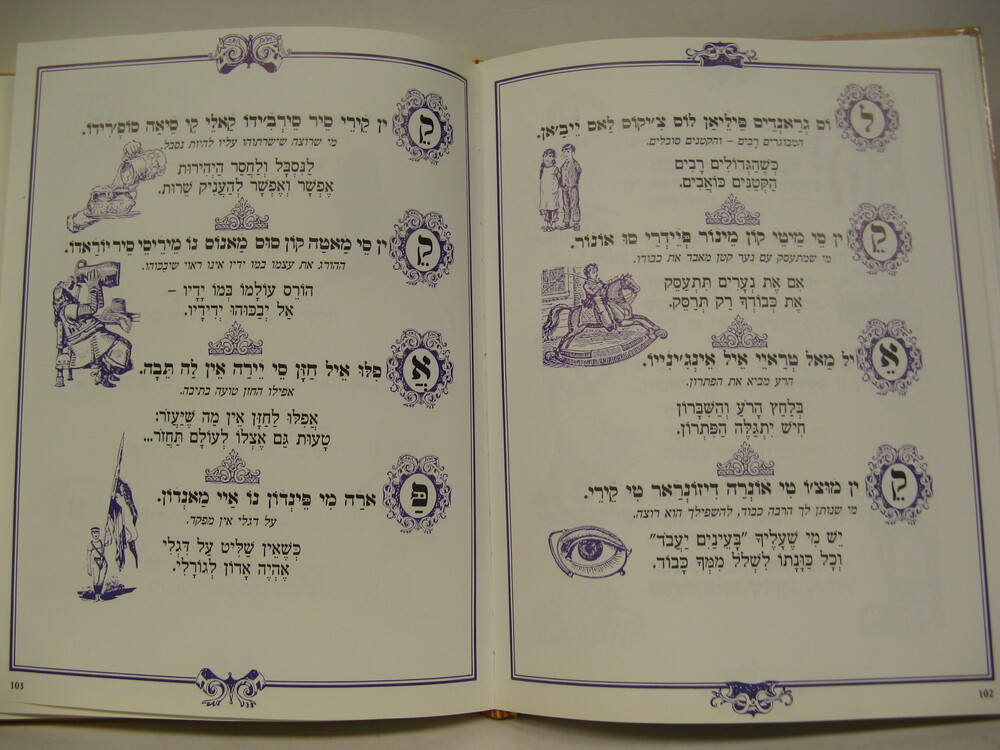 לוֹס גְרַאנְדִיס פֵּילֵיאַן לוֹס צִ׳יקוֹס לַאס יֵיבַ׳אן.
המבוגרים רָבים – והקטנים סובלים.
כְּשֶׁהַגְּדוֹלִים רָבִים
הַקְּטַנִּים כּוֹאֲבִים.
קֵין סֵי מֵיטֵי קוֹן מֵינוֹר פְּיֵידְרֵי סוּ אוֹנוֹר.
מי שמתעסק עם נער קטן מאבד את כבודו.
אִם אֶת נְעָרִים תִּתְעַסֵּק
אֶת כְּבוֹדְךָ רַק תְּרַסֵּק.
אֵיל מַאל טְרַאיֵי אֵיל אֵינְגֵ׳ינְיוֹ.
הרע מביא את הפתרון.
בְּלַחַץ הָרֹעַ וְהַשִּׁבָּרוֹן
חִישׁ יִתְגַּלֶּה הַפִּתְרוֹן.
קֵין מוּצ׳וֹ טֵי אוֹנְרָה דֵיזוֹנְרַאר טֵי קֵירֵי.
מי שנותן לך הרבה כבוד, להשפילך הוא רוצה.
יֵשׁ מִי שֶׁעָלֶיךָ "בָּעֵינַיִם יַעֲבֹד"
וְכָל כַּוָּנָתוֹ לִשְׁלֹל מִמְּךָ כָּבוֹד.
102
קֵין קֵירֵי סֵיר סֵירְבִ׳ידוֹ קַאלֵי קֵי סֵיאַה סוּפְרִידוֹ.
מי שרוצה שישרתוהו עליו להיות נסבל.
לַנִּסְבָּל וְלַחֲסַר הַיְּהִירוּת
אֶפְשָׁר וְאֶפְשָׁר לְהַעֲנִיק שֵׁרוּת.
קֵין סֵי מַאטַה קוֹן סוּס מַאנוֹס נוֹ מֵירֵיסֵי סֵיר יוֹרַאדוֹ.
ההורג את עצמו במו ידיו אינו ראוי שיבכוהו.
הוֹרֵס עוֹלָמוֹ בְּמוֹ יָדָיו –
אַל יְבַכּוּהוּ יְדִידָיו.
אֲפִלּוּ אֵיל חַזָּן סֵי יֵירַה אֵין לַה תֵּבָה.
אפילו החזן טועה בתיבה.
אֲפִלּוּ לַחַזָּן אֵין מַה שֶּׁיַּעֲזֹר:
טָעוּת גַּם אֶצְלוֹ לְעוֹלָם תַּחֲזֹר...
פַּארַה מִי פֵּינְדוֹן נוֹ אַיי מַאנְדוֹן.
על דגלי אין מפקד.
כְּשֶׁאֵין שַׁלִּיט עַל דִּגְלִי
אֶהְיֶה אָדוֹן לְגוֹרָלִי.
103